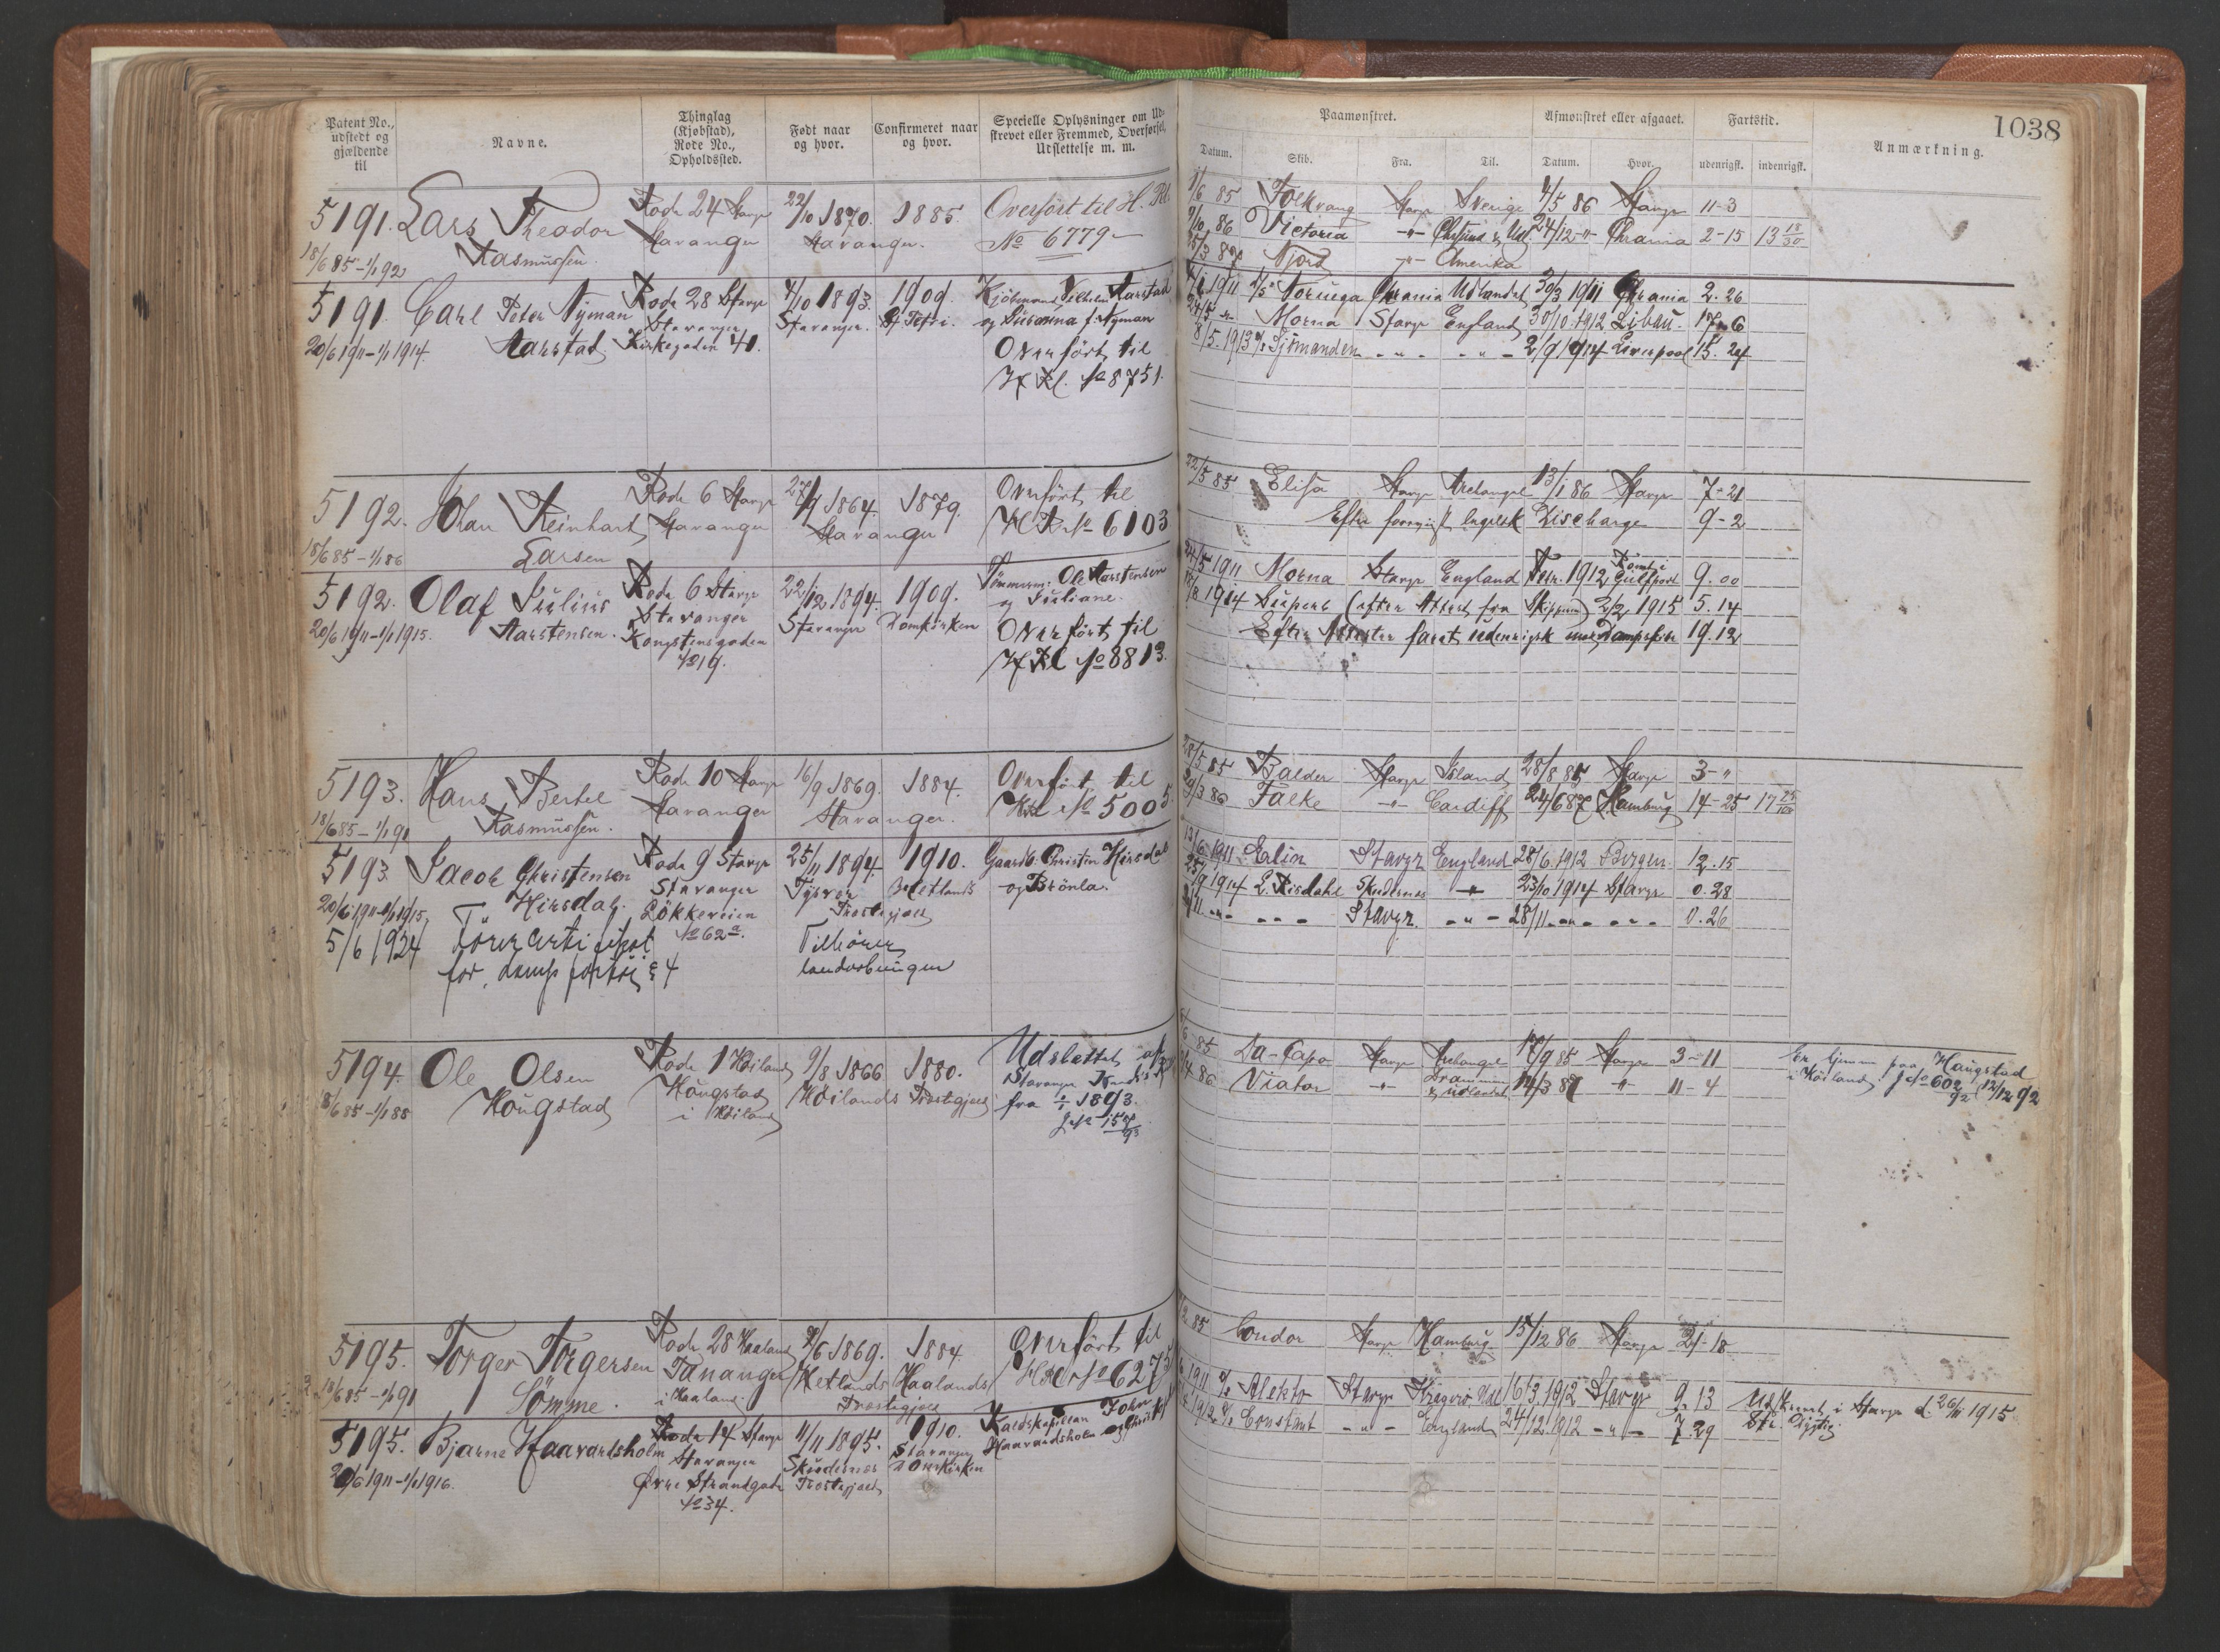 Patent No., udstedt og gjældende til
Navne.
Thinglag (Kjøbstad), Rode No., Opholdssted.
Født naar og hvor.
Confirmeret naar og hvor.
Specielle Oplysninger om Udskrevet eller Fremmed, Overførsel, Udslettelse m. m.
Paamønstret.
Afmønstret eller afgaaet.
Fartstid.
Anmærkning.
1038
Datum.
Skib.
Fra.
Til.
Datum.
Hvor.
udenrigsk.
indenrigsk.
5191. Lars Theodor Rode 24 Stavgr 22/10 1870. 1885. Overført til H. Rl.
18/6 85 - 1/1 92 Rasmussen. Stavanger Stavanger. No 6779
1/6 85 Folkvang Stavgr Sverige 4/5 86 Stavgr 11-3
9/10 86 Victoria -"- Chrsund & Udl. 24/12 -"- Chrania 2-15 13 18/30
25/3 87 Njord -"- Amerika
5191. Carl Peter Nyman Rode 28 Stavgr 4/10 1893. 1909. Kjöbmand Vilhelm Aarstad
20/6 1911 - 1/1 1914. Aarstad Stavanger Stavanger. St Petri. og Susanna f. Nyman
Kirkegaden 41. Overført til
H Rl. No 8751.
1911 Noruega Chrania Udlandet 30/3 1911 Chrania 2. 26
24/5 -"- Morna Stavgr England 30/10 1912 Libau. 17. 6
8/5. 1913 Sjömanden - " - - " - 2/9 1914 Liverpool 15. 24
5192. Johan Reinhart Rode 6 Stavgr 27/9 1864. 1879. Overført til
18/6 85 - 1/1 86 Larsen Stavanger Stavanger H R No 6103
22/5 85 Elisa Stavgr Archangel 13/1 86 Stavgr 7-21
Efter forevist Engelsk Discharge 9-2
5192. Olaf Julius Rode 6 Stavgr 22/12 1894. 1909. Tömmerm. Ole Aarstensen
20/6 1911 - 1/1 1915. Aarstensen. Stavanger Stavanger Domkirken og Juliane.
Kongstensgaden Overført til
No 19. H Rl No 8813.
24/5 1911 Morna Stavgr England Febr. 1912 Rømt i Gulfport 9. 00
1914 Superb (efter Attest fra Skipperen) 2/2 1915 5. 14
Efter Attester faret udenrigsk med Dampskibe 19. 12
5193. Hans Bertel Rode 10 Stavgr 16/9 1869. 1884. Overført til
18/6 85 - 1/1 91 Rasmussen. Stavanger Stavanger. HRl No 5005
28/5 85 Balder Stavgr Island 28/8 85 Stavgr 3-"
29/3 86 Falke -"- Cardiff 24/6 87 Hamburg 14-25 17
5193. Jacob Christensen Rode 9 Stavgr 25/11 1894. 1910. Gaardb. Christen Hirsdal
20/6 1911 - 1/1 1915, Hirsdal. Stavanger Tysvær Hetlands
Lökkeveien Præstegjæld
No 62a.
5/6 1924 Førercertifikat Tilhörer
for dampfartöi landvebningen
13/6 1911 Erlin Stavgr England 28/6. 1912 Bergen. 12. 15
25/9 1914 L. Risdahl Skudesnes -"- 23/10 1914 Stavgr 0. 28
Stavgr. - " - 28/11 - " - 0. 26
5194. Ole Olsen Rode 1 Höiland 9/8 1866 1880. Udslettet af
18/6 85 - 1/1 88 Hougstad Hougstad Höilands Præstegjæld Stavanger
i Höiland fra 1/1 1893.
J No 157/93
85 Da-Capo Stavgr Archangel 17/9 85 Stavgr 3-11
86 Viator -"- Drammen & udlandet 14/3 87 -"- 11-4
Er hjemme paa Haugstad
i Höiland J No 602/92 12/12 92
5195. Torger Torgersen Rode 28 Haaland 7/6 1869. 1884. Overført til
18/6 85 - 1/1 91 Sömme. Tananger Hetlands Haalands HRl No 6275
i Haaland. Præstegjæld
85 Condor Stavgr Hamburg 15/12 86 Stavgr 21-18
5195. Bjarne Haavardsholm Rode 14 Stavgr 11/11 1895. 1910. Kaldskapellan John
20/6 1911 - 1/1 1916. Stavanger Skudesnes Stavanger Domkirken Haavardsholm og
Øvre Strandgade Præstegjæld
No 34.
1911 Alekto Stavgr Kragerö Udl 16/3. 1912 Stavgr 9. 13
1912 Constant - " - England 24/12. 1912 - " - 7. 29
Udskrevet i Stavgr d. 26/11 1915